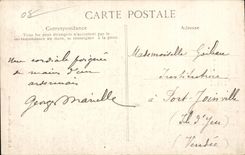 CARTE POSTALE
Correspondance
Adresse
Tous les pays étrangers n'acceptent pas la
correspondance au recto, se renseigner à la poste
Mademoiselle
Une cordiale poignée
de main d'un
Institutrice
ardennais
à Port-Joinville
Georges
Ile d'Yeu
(Vendée)